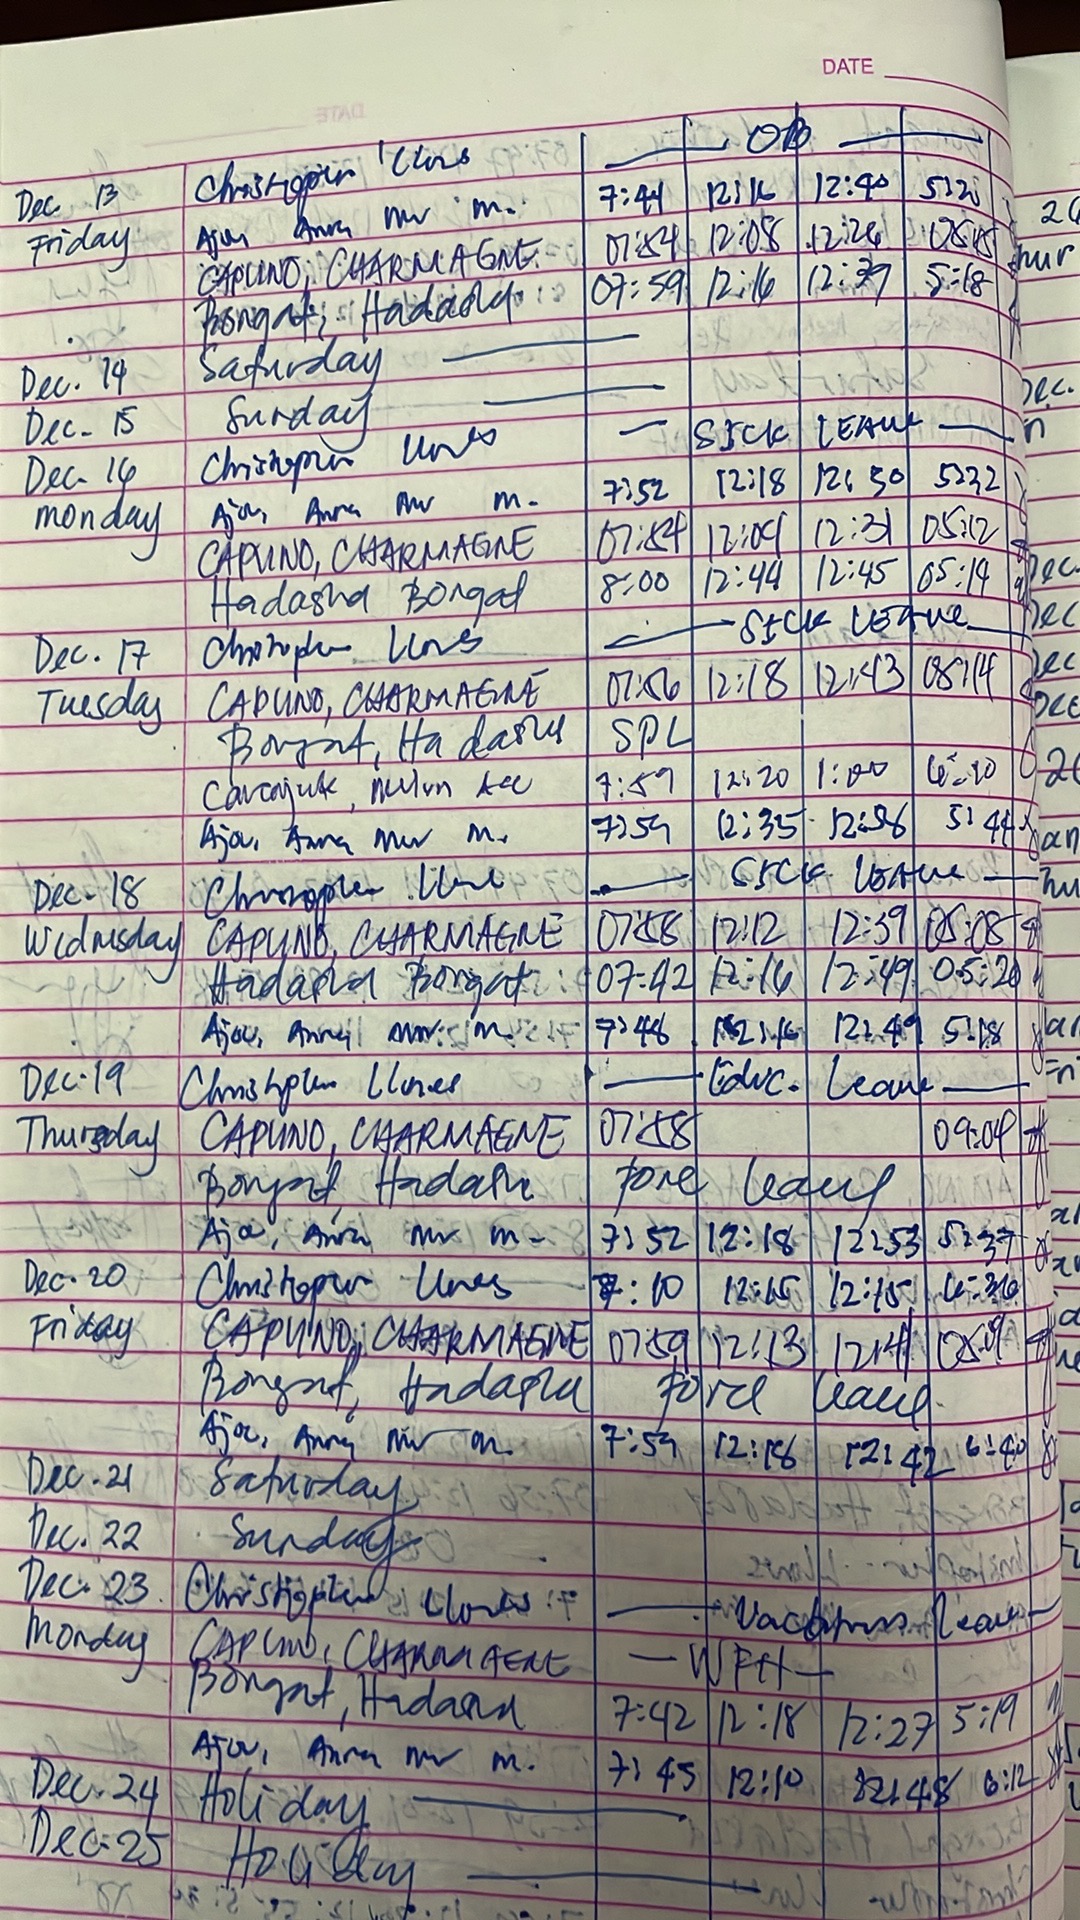 DATE
Dec. 13 Christopher Llones — OB —
Friday Ajoc, Anna Mar M. 7:44 12:16 12:40 5:20
CAPUNO, CHARMAGNE 07:54 12:08 12:26 05:15
Bongat, Hadasha 07:59 12:16 12:37 5:18
Dec. 14 Saturday
Dec. 15 Sunday
Dec. 16 Christopher Llones — SICK LEAVE —
Monday Ajoc, Anna Mar M. 7:52 12:18 12:50 5:22
CAPUNO, CHARMAGNE 07:54 12:04 12:31 05:12
Hadasha Bongat 8:00 12:44 12:45 05:14
Dec. 17 Christopher Llones — SICK LEAVE —
Tuesday CAPUNO, CHARMAGNE 07:56 12:18 12:43 05:14
Bongat, Hadasha SPL
7:59 12:20 1:00 6:10
Ajoc, Anna Mar M. 7:54 12:35 12:56 5:44
Dec. 18 Christopher Llones — SICK LEAVE —
Wednesday CAPUNO, CHARMAGNE 07:58 12:12 12:39 05:08
Hadasha Bongat 07:42 12:16 12:49 05:20
Ajoc, Anna Mar M. 7:48 12:16 12:49 5:18
Dec. 19 Christopher Llones — Educ. Leave —
Thursday CAPUNO, CHARMAGNE 07:58 09:04
Bongat, Hadasha Force leave
Ajoc, Anna Mar M. 7:52 12:18 12:53 5:37
Dec. 20 Christopher Llones 7:10 12:15 12:15 6:36
Friday CAPUNO, CHARMAGNE 07:59 12:13 12:41 05:09
Bongat, Hadasha Force leave
Ajoc, Anna Mar M. 7:54 12:18 12:42 6:40
Dec. 21 Saturday
Dec. 22 Sunday
Dec. 23 Christopher Llones — Vacation Leave —
Monday CAPUNO, CHARMAGNE — WFH —
Bongat, Hadasha 7:42 12:18 12:27 5:19
Ajoc, Anna Mar M. 7:45 12:10 12:48 6:12
Dec. 24 Holiday
Dec. 25 Holiday